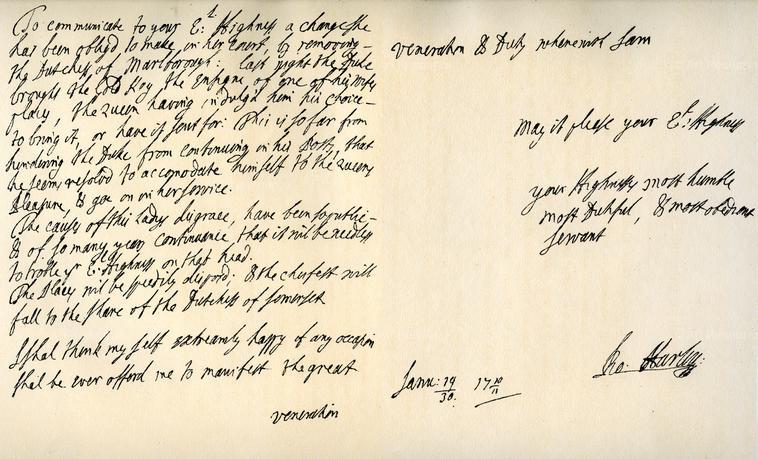 To communicate to your E:l Highness a change she
has been oblidg'd to make, in her Court, by removing
the Dutchess of Marlborough: last night the Duke
brought the Gold Key, the Ensigne of one of his Wifes
places, the Queen having indulg'd him his choice
to bring it, or have it sent for: This is so far from
hindering the Duke from continuing in his Posts, that
he seems resolvd to accomodate himself to the Queens
Pleasure, & goe on in her service.
The causes of this Ladys disgrace, have been so publick
& of so many years continuance, that it wil be needless
to trouble yr E: Highness on that head.
The Places wil be speedily disposd; & the cheifest will
fall to the share of the Dutchess of Somerset
I shal think my self extreamly happy if any occasion
shal be ever afford me to manifest the great
veneration
veneration & Duty wherewith I am
May it please your E:l Highness
your Highness's most humble
most Dutiful, & most obedient
servant
Ro: Harley:
Janu: 19/30. 17 10/11